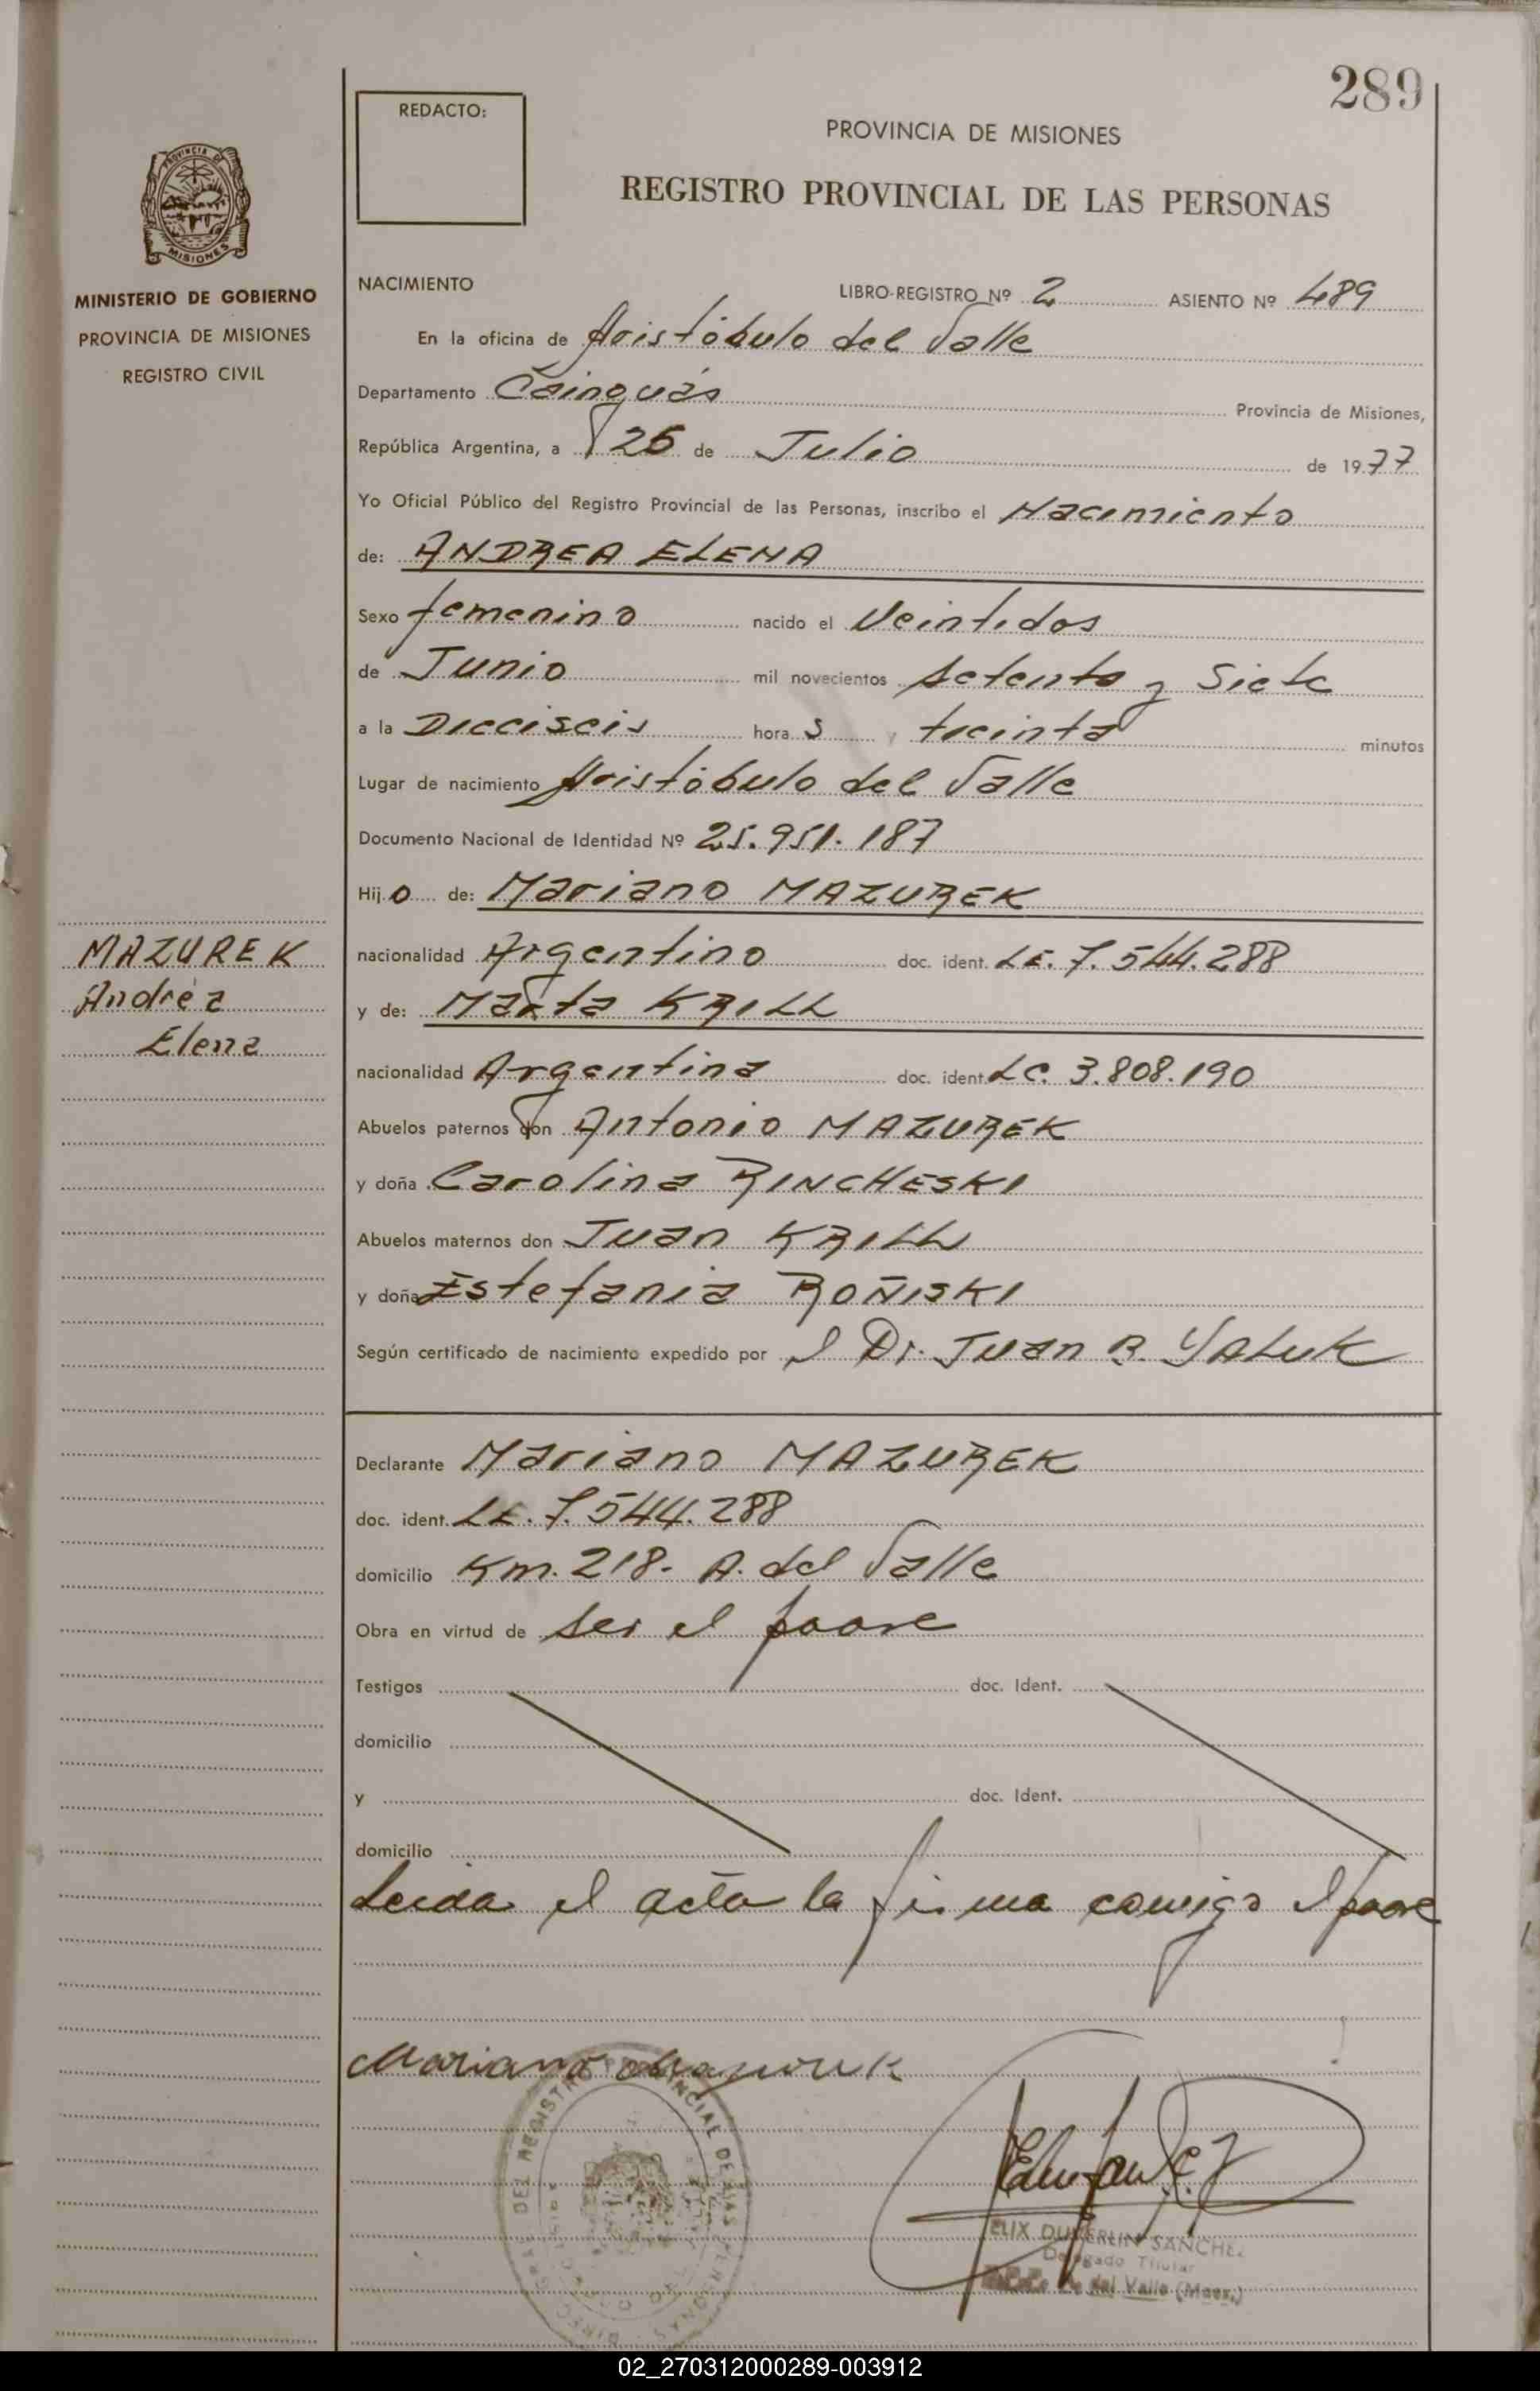 289
REDACTO:
PROVINCIA DE MISIONES
REGISTRO PROVINCIAL DE LAS PERSONAS
MISIONES
MINISTERIO DE GOBIERNO
PROVINCIA DE MISIONES
REGISTRO CIVIL
NACIMIENTO
LIBRO-REGISTRO Nº 2 ASIENTO Nº 489
En la oficina de Aristóbulo del Valle
Departamento Cainguás Provincia de Misiones,
República Argentina, a 26 de Julio de 1977
Yo Oficial Público del Registro Provincial de las Personas, inscribo el Nacimiento
de: ANDREA ELENA
Sexo femenino nacido el Veintidos
de Junio mil novecientos setenta y Siete
a la Dieciseis hora s y treinta minutos
Lugar de nacimiento Aristóbulo del Valle
Documento Nacional de Identidad Nº 25.951.187
Hij o de: Mariano MAZUREK
MAZUREK
Andrea
Elena
nacionalidad Argentino doc. ident. LE. 7.544.288
y de: Marta KRILL
nacionalidad Argentina doc. ident. LC. 3.808.190
Abuelos paternos don Antonio MAZUREK
y doña Carolina RINCHESKI
Abuelos maternos don Juan KRILL
y doña Estefania ROÑISKI
Según certificado de nacimiento expedido por el Dr. Juan R. YALUK
Declarante Mariano MAZUREK
doc. ident. LE. 7.544.288
domicilio Km. 218- A. del Valle
Obra en virtud de ser el padre
Testigos doc. Ident.
domicilio
y doc. Ident.
domicilio
Leida el acta la firma conmigo el padre
Mariano
DEL REGISTRO PROVINCIAL DE LAS PERSONAS
SANCHEZ
Delegado Titular
del Valle (Mnes.)
02_270312000289-003912